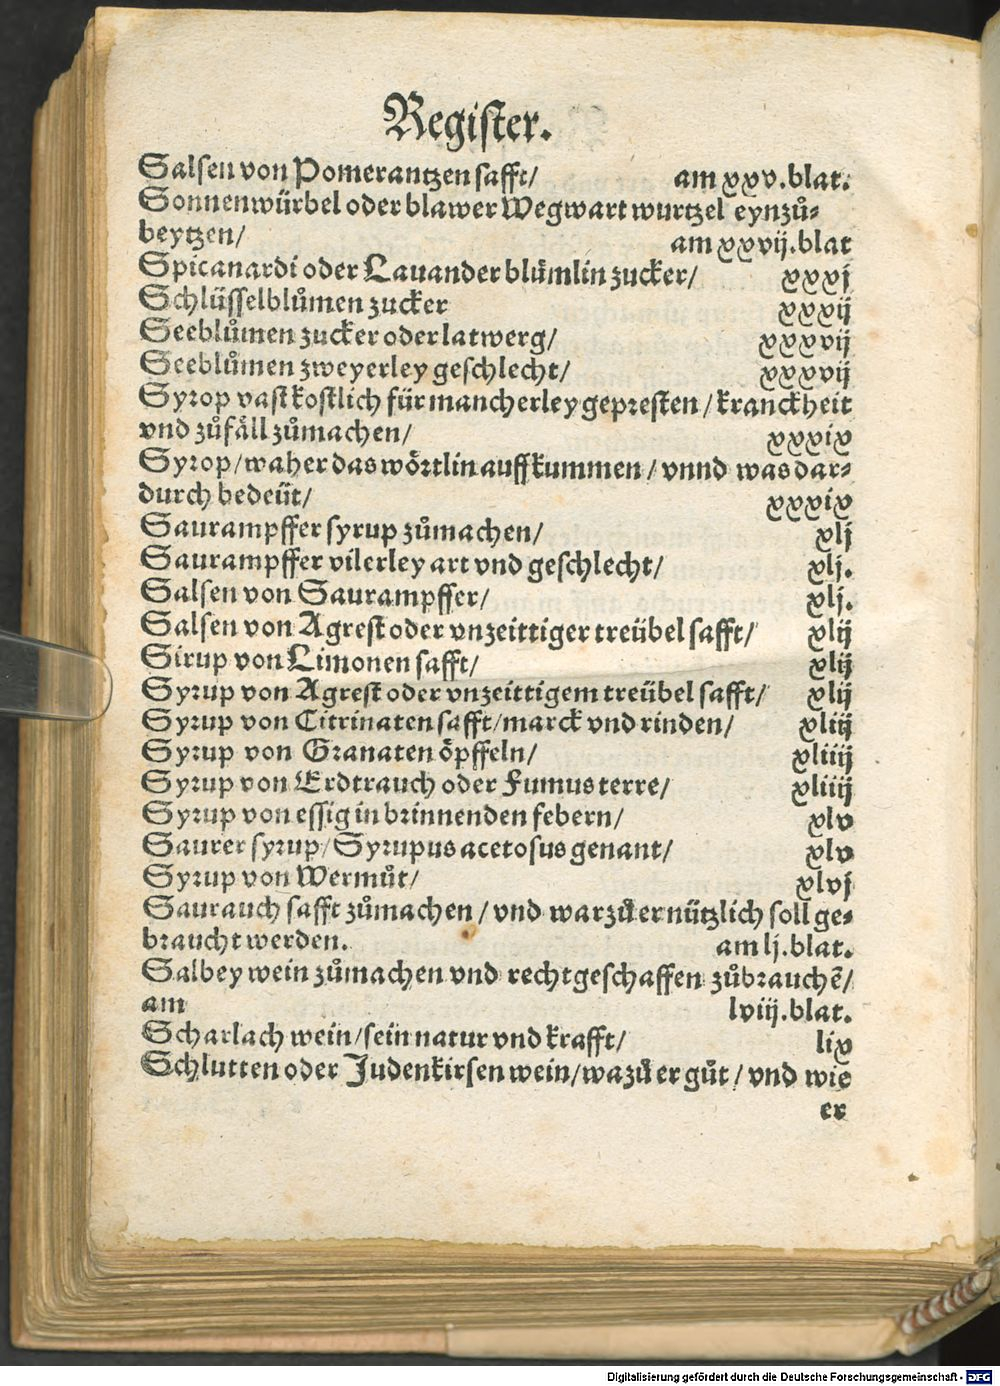 Register.
Salsen von Pomerantzen safft/ am xxv.blat.
Sonnenwürbel oder blawer Wegwart wurtzel eynzů-
beytzen/ am xxvij.blat
Spicanardi oder Lauander blůmlin zucker/ xxxj
Schlüsselblůmen zucker xxxij
Seeblůmen zucker oder latwerg/ xxxvij
Seeblůmen zweyerley geschlecht/ xxxvij
Syrop vast kostlich für mancherley gepresten/ kranckheit
vnd zůfäll zůmachen/ xxxix
Syrop/ waher das wörtlin auffkummen/ vnnd was dar-
durch bedeüt/ xxxix
Saurampffer syrup zůmachen/ xlj
Saurampffer vilerley art vnd geschlecht/ xlj.
Salsen von Saurampffer/ xlj.
Salsen von Agrest oder vnzeittiger treübel safft/ xlij
Sirup von Limonen safft/ xlij
Syrup von Agrest oder vnzeittigem treübel safft/ xlij
Syrup von Citrinaten safft/ marck vnd rinden/ xliij
Syrup von Granaten öpffeln/ xliiij
Syrup von Erdtrauch oder Fumus terre/ xliiij
Syrup von essig in brinnenden febern/ xlv
Saurer syrup/ Syrupus acetosus genant/ xlv
Syrup von Wermůt/ xlvj
Saurauch safft zůmachen/ vnd warzů er nützlich soll ge-
braucht werden. am lj.blat.
Salbey wein zůmachen vnd recht geschaffen zůbrauchẽ/
am lviij.blat.
Scharlach wein/ sein natur vnd krafft/ lix
Schlutten oder Judenkirsen wein/ wazů er gůt/ vnd wie
er
Digitalisierung gefördert durch die Deutsche Forschungsgemeinschaft - DFG